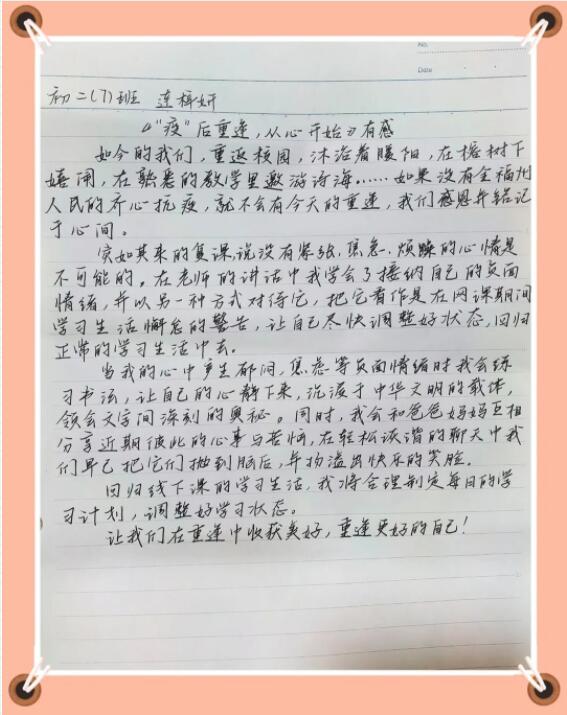 No.
Date
初二(7)班 连梓妍
“疫”后重逢,从心开始 有感
如今的我们,重返校园,沐浴着暖阳,在榕树下
嬉闹,在熟悉的教学里遨游诗海……如果没有全福州
人民的齐心抗疫,就不会有今天的重逢,我们感恩并铭记
于心间。
突如其来的复课,说没有紧张、焦急、烦躁的心情是
不可能的。在老师的讲话中我学会了接纳自己的负面
情绪,并以另一种方式对待它,把它看作是在网课期间
学习生活懈怠的警告,让自己尽快调整好状态,回归
正常的学习生活中去。
当我的心中产生郁闷,焦虑等负面情绪时我会练
习书法,让自己的心静下来,沉浸于中华文明的载体,
领会文字间深刻的奥秘。同时,我会和爸爸妈妈互相
分享近期彼此的心事与苦恼,在轻松诙谐的聊天中我
们早已把它们抛到脑后,并扬溢出快乐的笑脸。
回归线下课的学习生活,我将合理制定每日的学
习计划,调整好学习状态。
让我们在重逢中收获美好,重逢更好的自己!